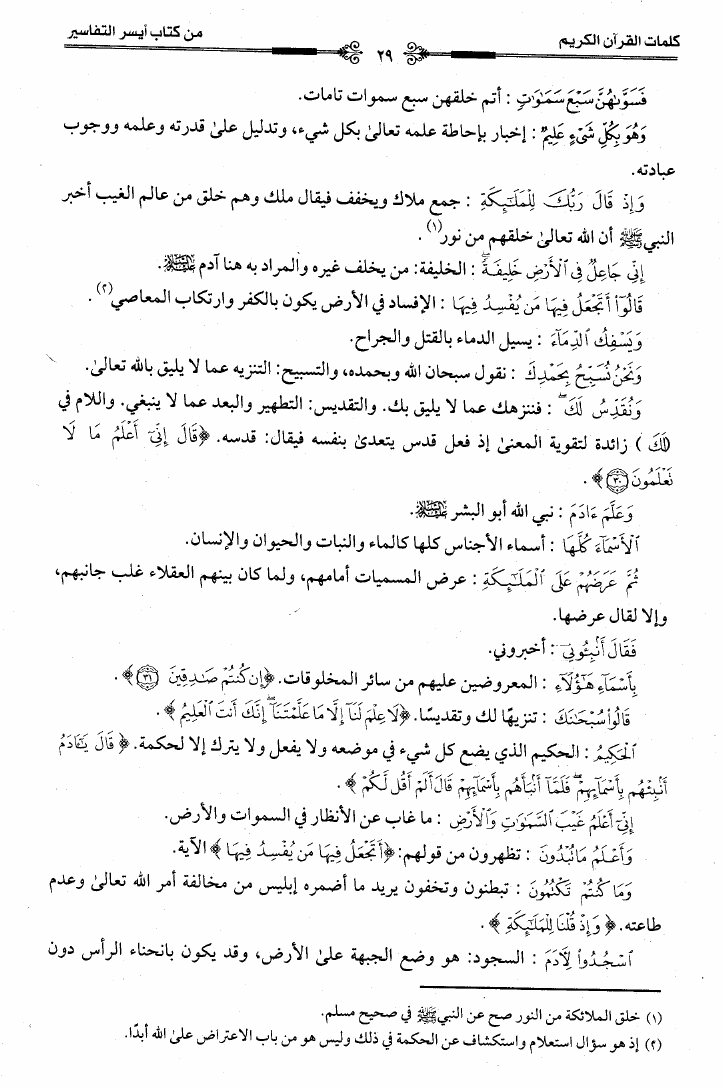 كلمات القرآن الكريم
٢٩
من كتاب أيسر التفاسير
فَسَوَّىٰهُنَّ سَبْعَ سَمَٰوَٰتٍ : أتم خلقهن سبع سموات تامات.
وَهُوَ بِكُلِّ شَىْءٍ عَلِيمٌ : إخبار بإحاطة علمه تعالىٰ بكل شيء، وتدليل علىٰ قدرته وعلمه ووجوب
عبادته.
وَإِذْ قَالَ رَبُّكَ لِلْمَلَٰٓئِكَةِ : جمع ملاك ويخفف فيقال ملك وهم خلق من عالم الغيب أخبر
النبي ﷺ أن الله تعالىٰ خلقهم من نور(١).
إِنِّى جَاعِلٌ فِى ٱلْأَرْضِ خَلِيفَةً : الخليفة: من يخلف غيره والمراد به هنا آدم عليه السلام.
قَالُوٓا۟ أَتَجْعَلُ فِيهَا مَن يُفْسِدُ فِيهَا : الإفساد في الأرض يكون بالكفر وارتكاب المعاصي(٢).
وَيَسْفِكُ ٱلدِّمَآءَ : يسيل الدماء بالقتل والجراح.
وَنَحْنُ نُسَبِّحُ بِحَمْدِكَ : نقول سبحان الله وبحمده، والتسبيح: التنزيه عما لا يليق بالله تعالىٰ.
وَنُقَدِّسُ لَكَ : فننزهك عما لا يليق بك. والتقديس: التطهير والبعد عما لا ينبغي. واللام في
(لَكَ) زائدة لتقوية المعنىٰ إذ فعل قدس يتعدىٰ بنفسه فيقال: قدسه. ﴿قَالَ إِنِّىٓ أَعْلَمُ مَا لَا
تَعْلَمُونَ ٣٠﴾ .
وَعَلَّمَ ءَادَمَ : نبي الله أبو البشر عليه السلام.
ٱلْأَسْمَآءَ كُلَّهَا : أسماء الأجناس كلها كالماء والنبات والحيوان والإنسان.
ثُمَّ عَرَضَهُمْ عَلَى ٱلْمَلَٰٓئِكَةِ : عرض المسميات أمامهم، ولما كان بينهم العقلاء غلب جانبهم،
وإلا لقال عرضها.
فَقَالَ أَنۢبِـُٔونِى : أخبروني.
بِأَسْمَآءِ هَٰٓؤُلَآءِ : المعروضين عليهم من سائر المخلوقات. ﴿إِن كُنتُمْ صَٰدِقِينَ ٣١﴾ .
قَالُوا۟ سُبْحَٰنَكَ : تنزيهًا لك وتقديسًا. ﴿لَا عِلْمَ لَنَآ إِلَّا مَا عَلَّمْتَنَآ إِنَّكَ أَنتَ ٱلْعَلِيمُ﴾ .
ٱلْحَكِيمُ : الحكيم الذي يضع كل شيء في موضعه ولا يفعل ولا يترك إلا لحكمة. ﴿قَالَ يَٰٓـَٔادَمُ
أَنۢبِئْهُم بِأَسْمَآئِهِمْ فَلَمَّآ أَنۢبَأَهُم بِأَسْمَآئِهِمْ قَالَ أَلَمْ أَقُل لَّكُمْ﴾ .
إِنِّىٓ أَعْلَمُ غَيْبَ ٱلسَّمَٰوَٰتِ وَٱلْأَرْضِ : ما غاب عن الأنظار في السموات والأرض.
وَأَعْلَمُ مَا تُبْدُونَ : تظهرون من قولهم: ﴿أَتَجْعَلُ فِيهَا مَن يُفْسِدُ فِيهَا﴾ الآية.
وَمَا كُنتُمْ تَكْتُمُونَ : تبطنون وتخفون يريد ما أضمره إبليس من مخالفة أمر الله تعالىٰ وعدم
طاعته. ﴿وَإِذْ قُلْنَا لِلْمَلَٰٓئِكَةِ﴾ .
ٱسْجُدُوا۟ لِـَٔادَمَ : السجود: هو وضع الجبهة علىٰ الأرض، وقد يكون بانحناء الرأس دون
(١) خلق الملائكة من النور صح عن النبي ﷺ في صحيح مسلم.
(٢) إذ هو سؤال استعلام واستكشاف عن الحكمة في ذلك وليس هو من باب الاعتراض علىٰ الله أبدًا.